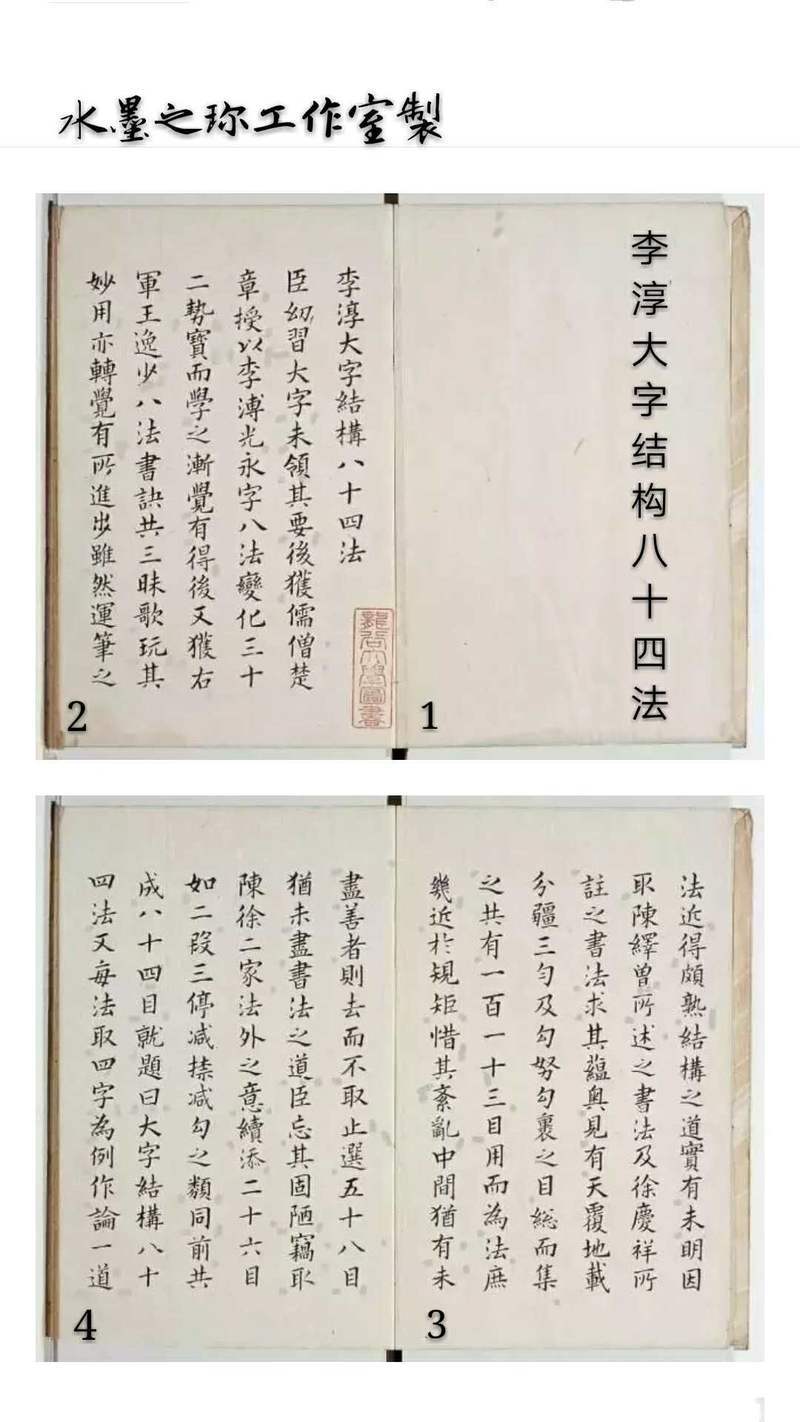 水墨之珎工作室製
李淳大字结构八十四法
1
李淳大字結構八十四法
臣幼習大字未領其要後獲儒僧楚
章授以李溥光永字八法變化三十
二勢寶而學之漸覺有得後又獲右
軍王逸少八法書訣共三昧歌玩其
妙用亦轉覺有所進步雖然運筆之
2
法近得頗熟結構之道實有未明因
取陳繹曾所述之書法及徐慶祥所
註之書法求其蘊奥見有天覆地載
分疆三勻及勾努勾裹之目総而集
之共有一百一十三目用而為法庶
幾近於規矩惜其紊亂中間猶有未
3
盡善者則去而不取止選五十八目
猶未盡書法之道臣忘其固陋竊取
陳徐二家法外之意續添二十六目
如二段三停减捺减勾之類同前共
成八十四目就題曰大字結構八十
四法又每法取四字為例作論一道
4